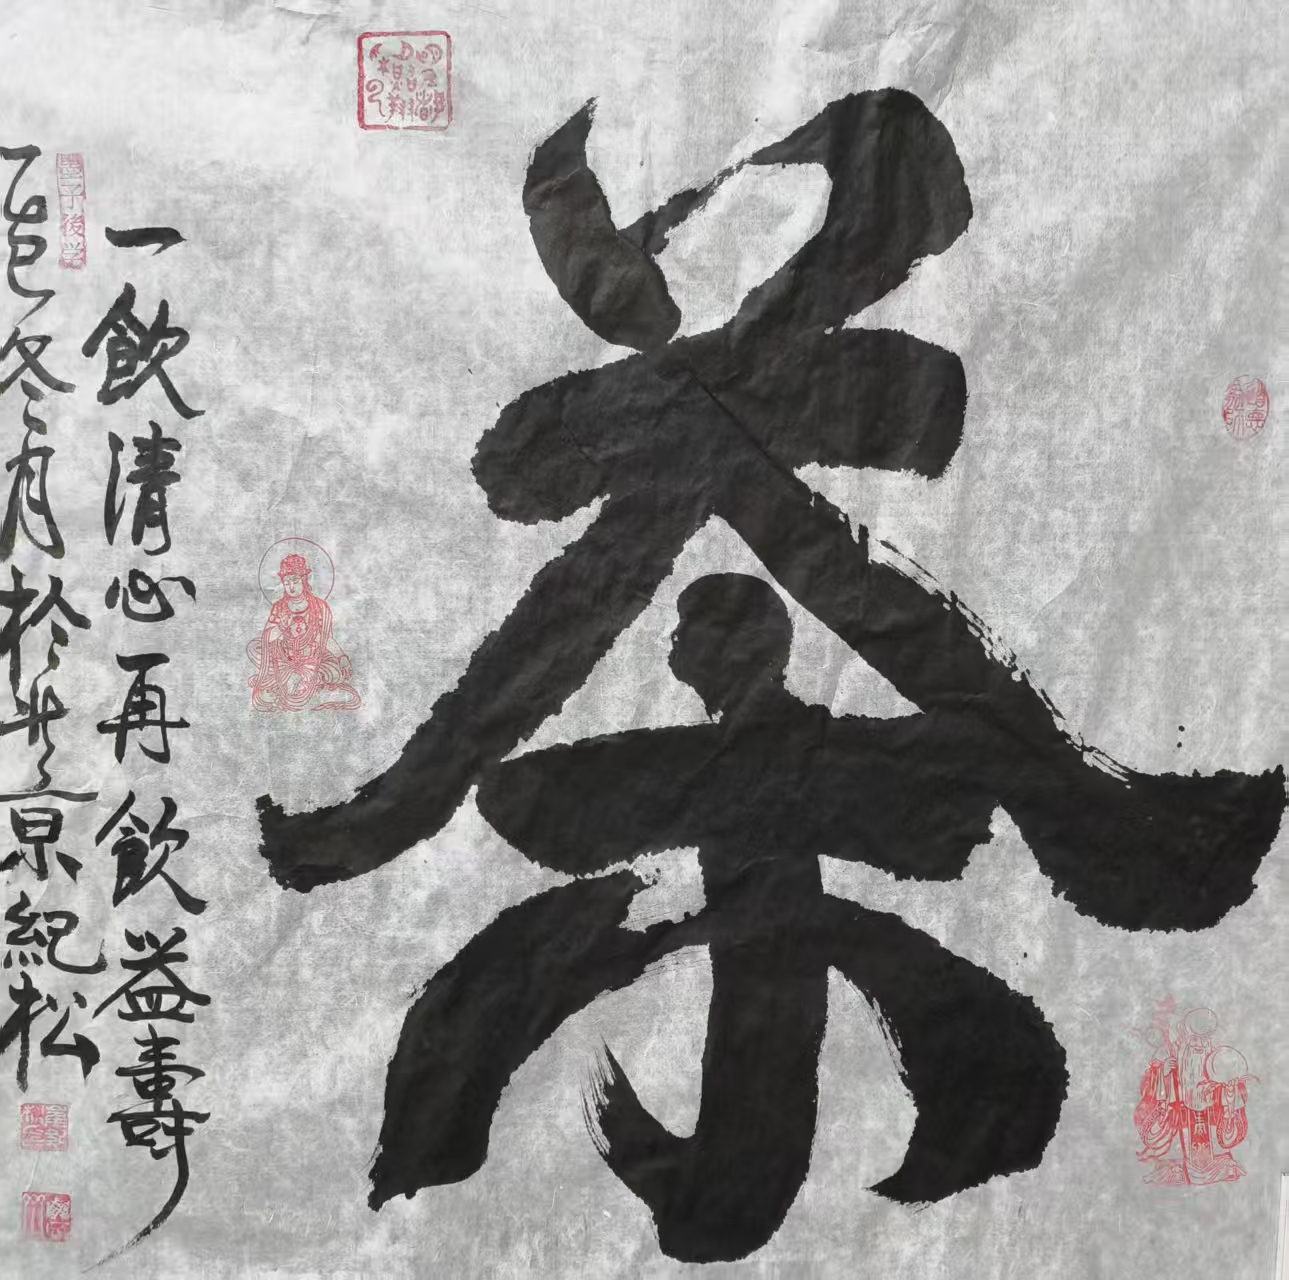 茶
一飲清心再飲益壽
乙巳冬月於北京紀松
墨子後学